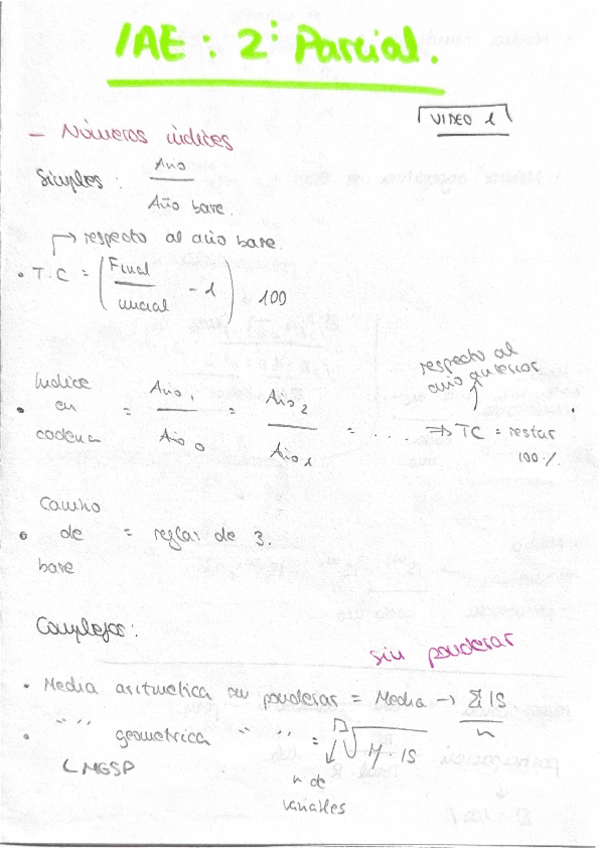 IAE : 2º Parcial.
VIDEO 1
- Números índices
Simples : Año
Año base.
→ respecto al año base.
• T.C = ( Final / inicial - 1 ) 100
respecto al
año anterior
• Indice en cadena = Año 1 / Año 0 = Año 2 / Año 1 = .... ⇒ TC = restar
100 %.
• Cambio de base = reglas de 3.
Complejos :
sin ponderar
• Media aritmetica sin ponderar = Media → Σ IS / n
• " " geometrica " " = √ · IS
MGSP
n de
variables